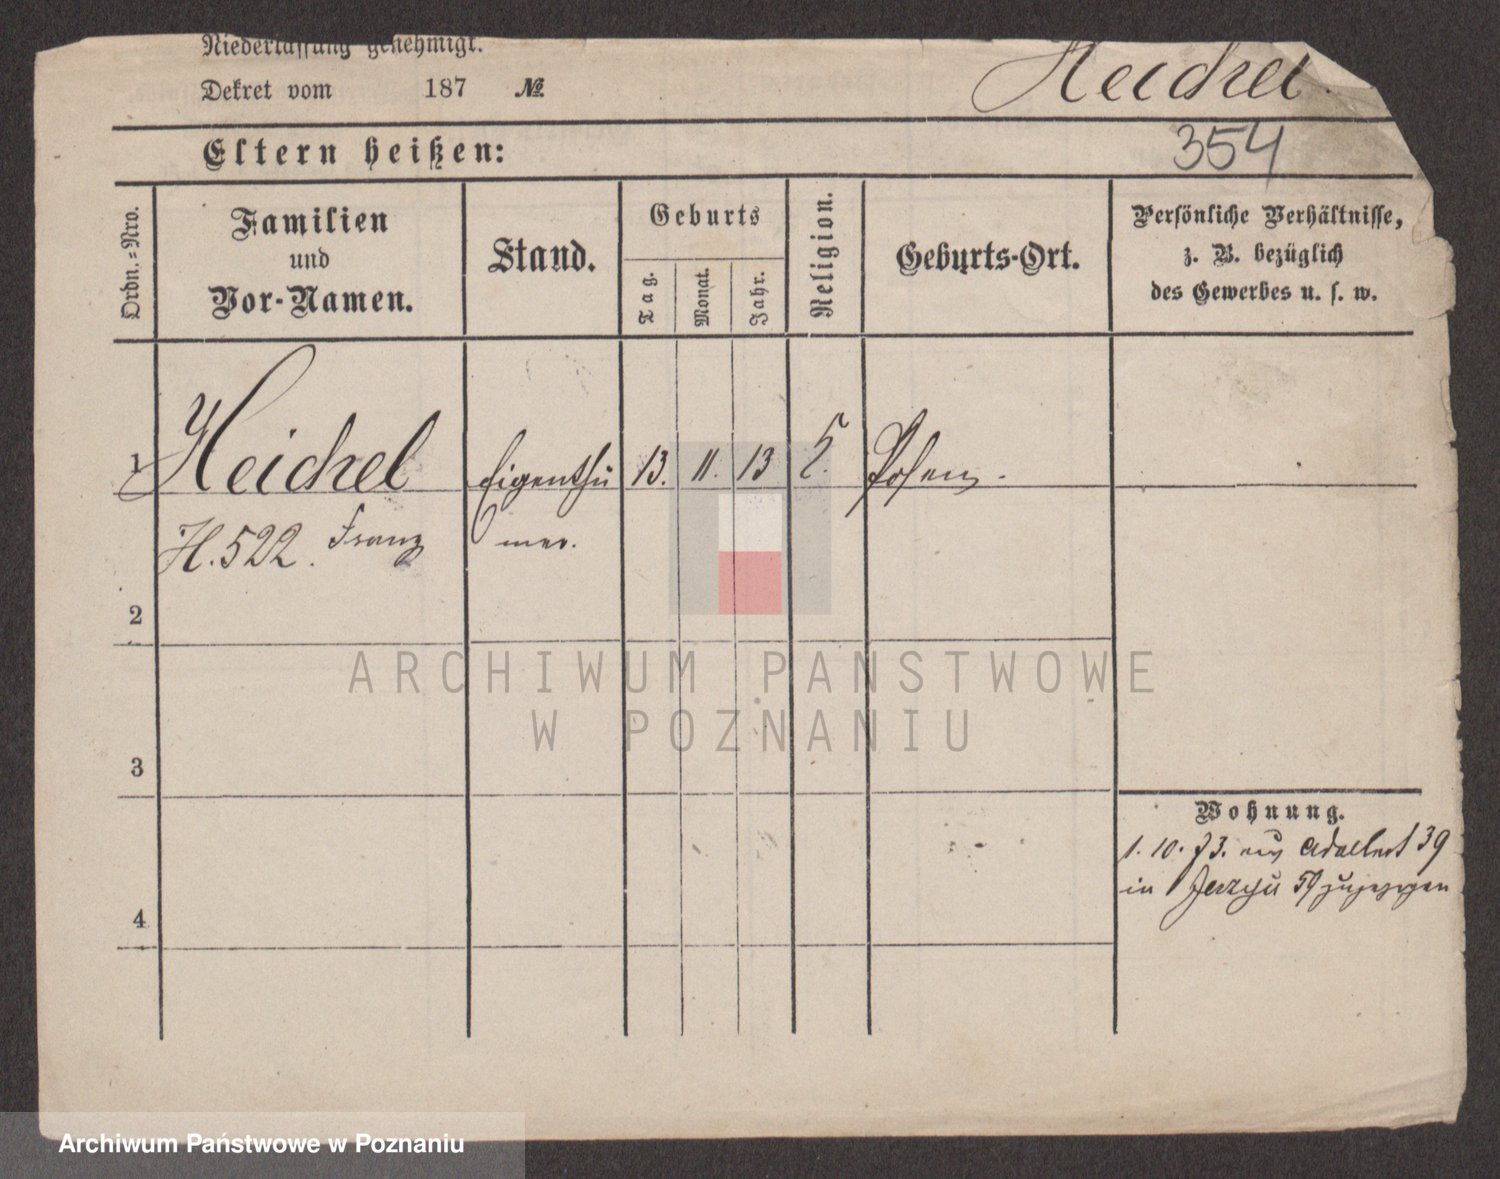 Niederlassung genehmigt.
Dekret vom 187 №
Heichel
Eltern heißen:
354
Ordn.=Nro.
Familien
und
Vor-Namen.
Stand.
Geburts
Tag.
Monat.
Jahr.
Religion.
Geburts-Ort.
Persönliche Verhältnisse,
z. B. bezüglich
des Gewerbes u. s. w.
1 Heichel Eigenthü 13. 11. 13 Posen.
H. 522. Franz mer.
2
3
4
Wohnung.
1. 10. 73. aus Adalbert 39
in 59 zugezogen
ARCHIWUM PAŃSTWOWE
W POZNANIU
Archiwum Państwowe w Poznaniu